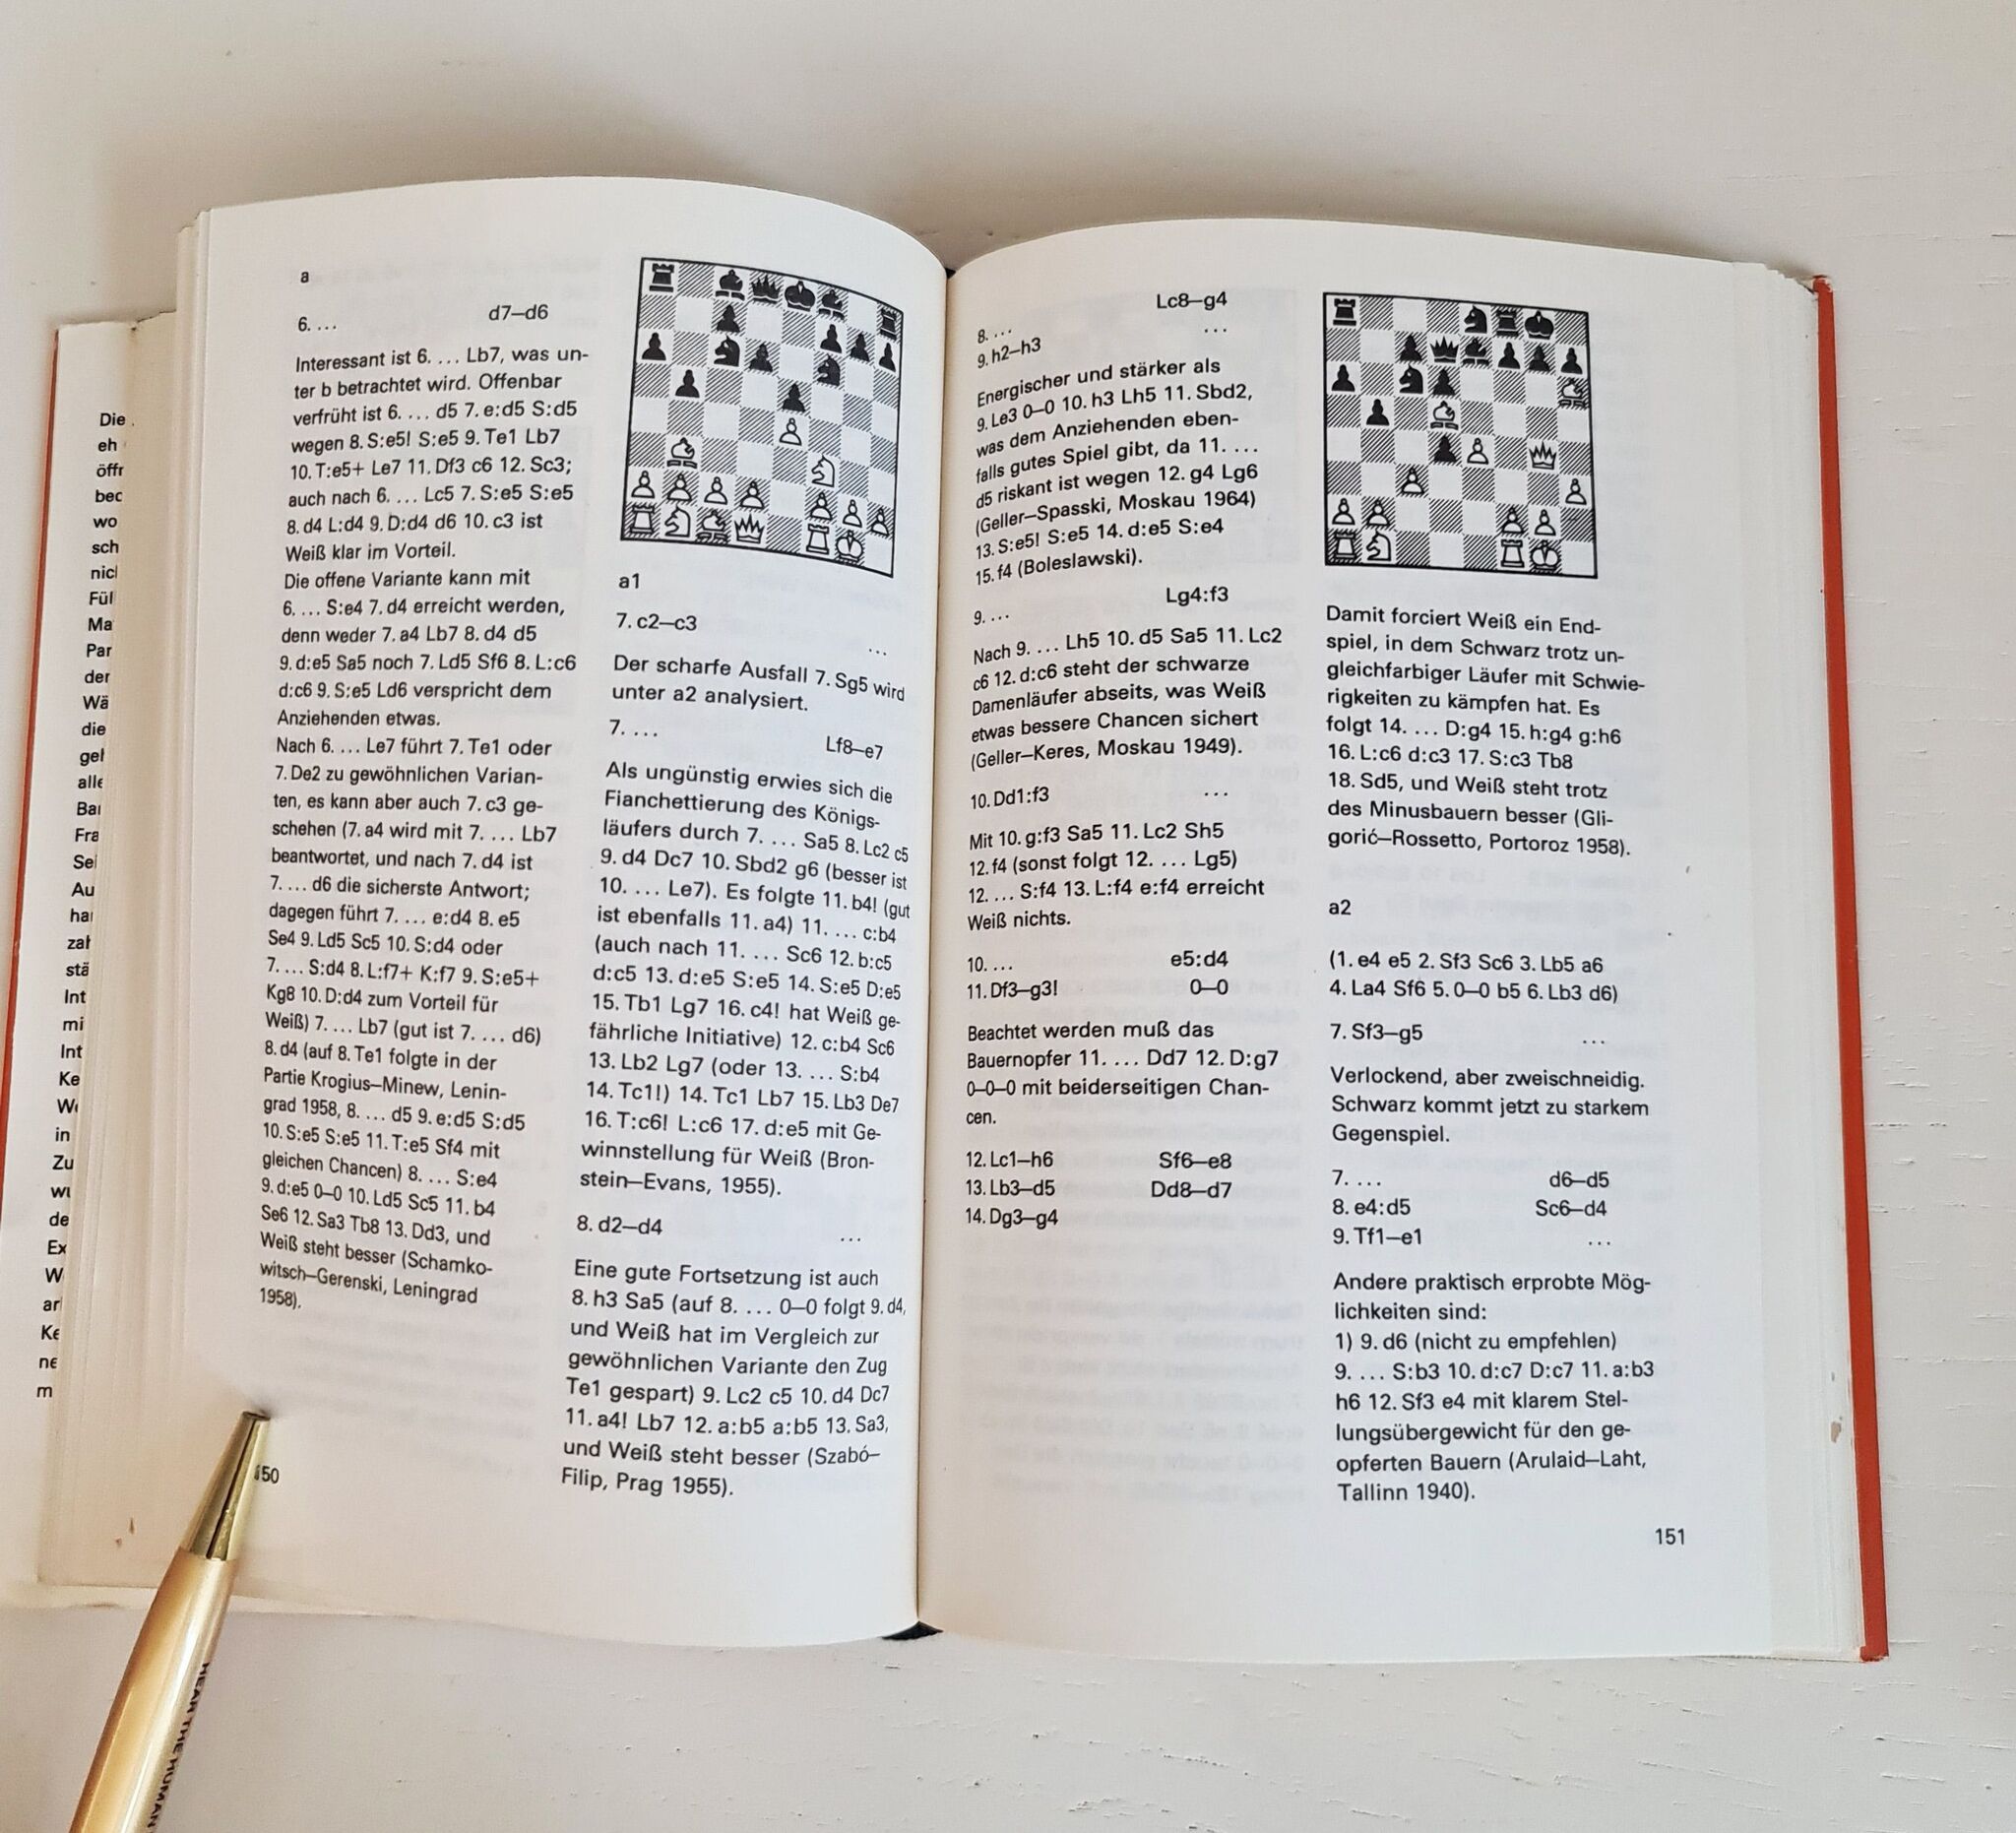 Die
eh
öffr
bec
wo
sch
nicl
Fül
Ma
Par
der
Wä
die
gel
alle
Bar
Fra
Sei
Au
har
zah
stä
Int
mi
Int
Ke
We
in
Zu
wu
de
Ex
W
ar
Ke
ne
m
a
6. ... d7–d6
Interessant ist 6. ... Lb7, was un-
ter b betrachtet wird. Offenbar
verfrüht ist 6. ... d5 7. e:d5 S:d5
wegen 8. S:e5! S:e5 9. Te1 Lb7
10. T:e5+ Le7 11. Df3 c6 12. Sc3;
auch nach 6. ... Lc5 7. S:e5 S:e5
8. d4 L:d4 9. D:d4 d6 10. c3 ist
Weiß klar im Vorteil.
Die offene Variante kann mit
6. ... S:e4 7. d4 erreicht werden,
denn weder 7. a4 Lb7 8. d4 d5
9. d:e5 Sa5 noch 7. Ld5 Sf6 8. L:c6
d:c6 9. S:e5 Ld6 verspricht dem
Anziehenden etwas.
Nach 6. ... Le7 führt 7. Te1 oder
7. De2 zu gewöhnlichen Varian-
ten, es kann aber auch 7. c3 ge-
schehen (7. a4 wird mit 7. ... Lb7
beantwortet, und nach 7. d4 ist
7. ... d6 die sicherste Antwort;
dagegen führt 7. ... e:d4 8. e5
Se4 9. Ld5 Sc5 10. S:d4 oder
7. ... S:d4 8. L:f7+ K:f7 9. S:e5+
Kg8 10. D:d4 zum Vorteil für
Weiß) 7. ... Lb7 (gut ist 7. ... d6)
8. d4 (auf 8. Te1 folgte in der
Partie Krogius–Minew, Lenin-
grad 1958, 8. ... d5 9. e:d5 S:d5
10. S:e5 S:e5 11. T:e5 Sf4 mit
gleichen Chancen) 8. ... S:e4
9. d:e5 0–0 10. Ld5 Sc5 11. b4
Se6 12. Sa3 Tb8 13. Dd3, und
Weiß steht besser (Schamko-
witsch–Gerenski, Leningrad
1958).
150
a1
7. c2–c3 ...
Der scharfe Ausfall 7. Sg5 wird
unter a2 analysiert.
7. ... Lf8–e7
Als ungünstig erwies sich die
Fianchettierung des Königs-
läufers durch 7. ... Sa5 8. Lc2 c5
9. d4 Dc7 10. Sbd2 g6 (besser ist
10. ... Le7). Es folgte 11. b4! (gut
ist ebenfalls 11. a4) 11. ... c:b4
(auch nach 11. ... Sc6 12. b:c5
d:c5 13. d:e5 S:e5 14. S:e5 D:e5
15. Tb1 Lg7 16. c4! hat Weiß ge-
fährliche Initiative) 12. c:b4 Sc6
13. Lb2 Lg7 (oder 13. ... S:b4
14. Tc1!) 14. Tc1 Lb7 15. Lb3 De7
16. T:c6! L:c6 17. d:e5 mit Ge-
winnstellung für Weiß (Bron-
stein–Evans, 1955).
8. d2–d4 ...
Eine gute Fortsetzung ist auch
8. h3 Sa5 (auf 8. ... 0–0 folgt 9. d4,
und Weiß hat im Vergleich zur
gewöhnlichen Variante den Zug
Te1 gespart) 9. Lc2 c5 10. d4 Dc7
11. a4! Lb7 12. a:b5 a:b5 13. Sa3,
und Weiß steht besser (Szabó–
Filip, Prag 1955).
8. ... Lc8–g4
9. h2–h3 ...
Energischer und stärker als
9. Le3 0–0 10. h3 Lh5 11. Sbd2,
was dem Anziehenden eben-
falls gutes Spiel gibt, da 11. ...
d5 riskant ist wegen 12. g4 Lg6
(Geller–Spasski, Moskau 1964)
13. S:e5! S:e5 14. d:e5 S:e4
15. f4 (Boleslawski).
9. ... Lg4:f3
Nach 9. ... Lh5 10. d5 Sa5 11. Lc2
c6 12. d:c6 steht der schwarze
Damenläufer abseits, was Weiß
etwas bessere Chancen sichert
(Geller–Keres, Moskau 1949).
10. Dd1:f3 ...
Mit 10. g:f3 Sa5 11. Lc2 Sh5
12. f4 (sonst folgt 12. ... Lg5)
12. ... S:f4 13. L:f4 e:f4 erreicht
Weiß nichts.
10. ... e5:d4
11. Df3–g3! 0–0
Beachtet werden muß das
Bauernopfer 11. ... Dd7 12. D:g7
0–0–0 mit beiderseitigen Chan-
cen.
12. Lc1–h6 Sf6–e8
13. Lb3–d5 Dd8–d7
14. Dg3–g4
Damit forciert Weiß ein End-
spiel, in dem Schwarz trotz un-
gleichfarbiger Läufer mit Schwie-
rigkeiten zu kämpfen hat. Es
folgt 14. ... D:g4 15. h:g4 g:h6
16. L:c6 d:c3 17. S:c3 Tb8
18. Sd5, und Weiß steht trotz
des Minusbauern besser (Gli-
gorić–Rossetto, Portoroz 1958).
a2
(1. e4 e5 2. Sf3 Sc6 3. Lb5 a6
4. La4 Sf6 5. 0–0 b5 6. Lb3 d6)
7. Sf3–g5 ...
Verlockend, aber zweischneidig.
Schwarz kommt jetzt zu starkem
Gegenspiel.
7. ... d6–d5
8. e4:d5 Sc6–d4
9. Tf1–e1 ...
Andere praktisch erprobte Mög-
lichkeiten sind:
1) 9. d6 (nicht zu empfehlen)
9. ... S:b3 10. d:c7 D:c7 11. a:b3
h6 12. Sf3 e4 mit klarem Stel-
lungsübergewicht für den ge-
opferten Bauern (Arulaid–Laht,
Tallinn 1940).
151
HEAR THE HUMAN